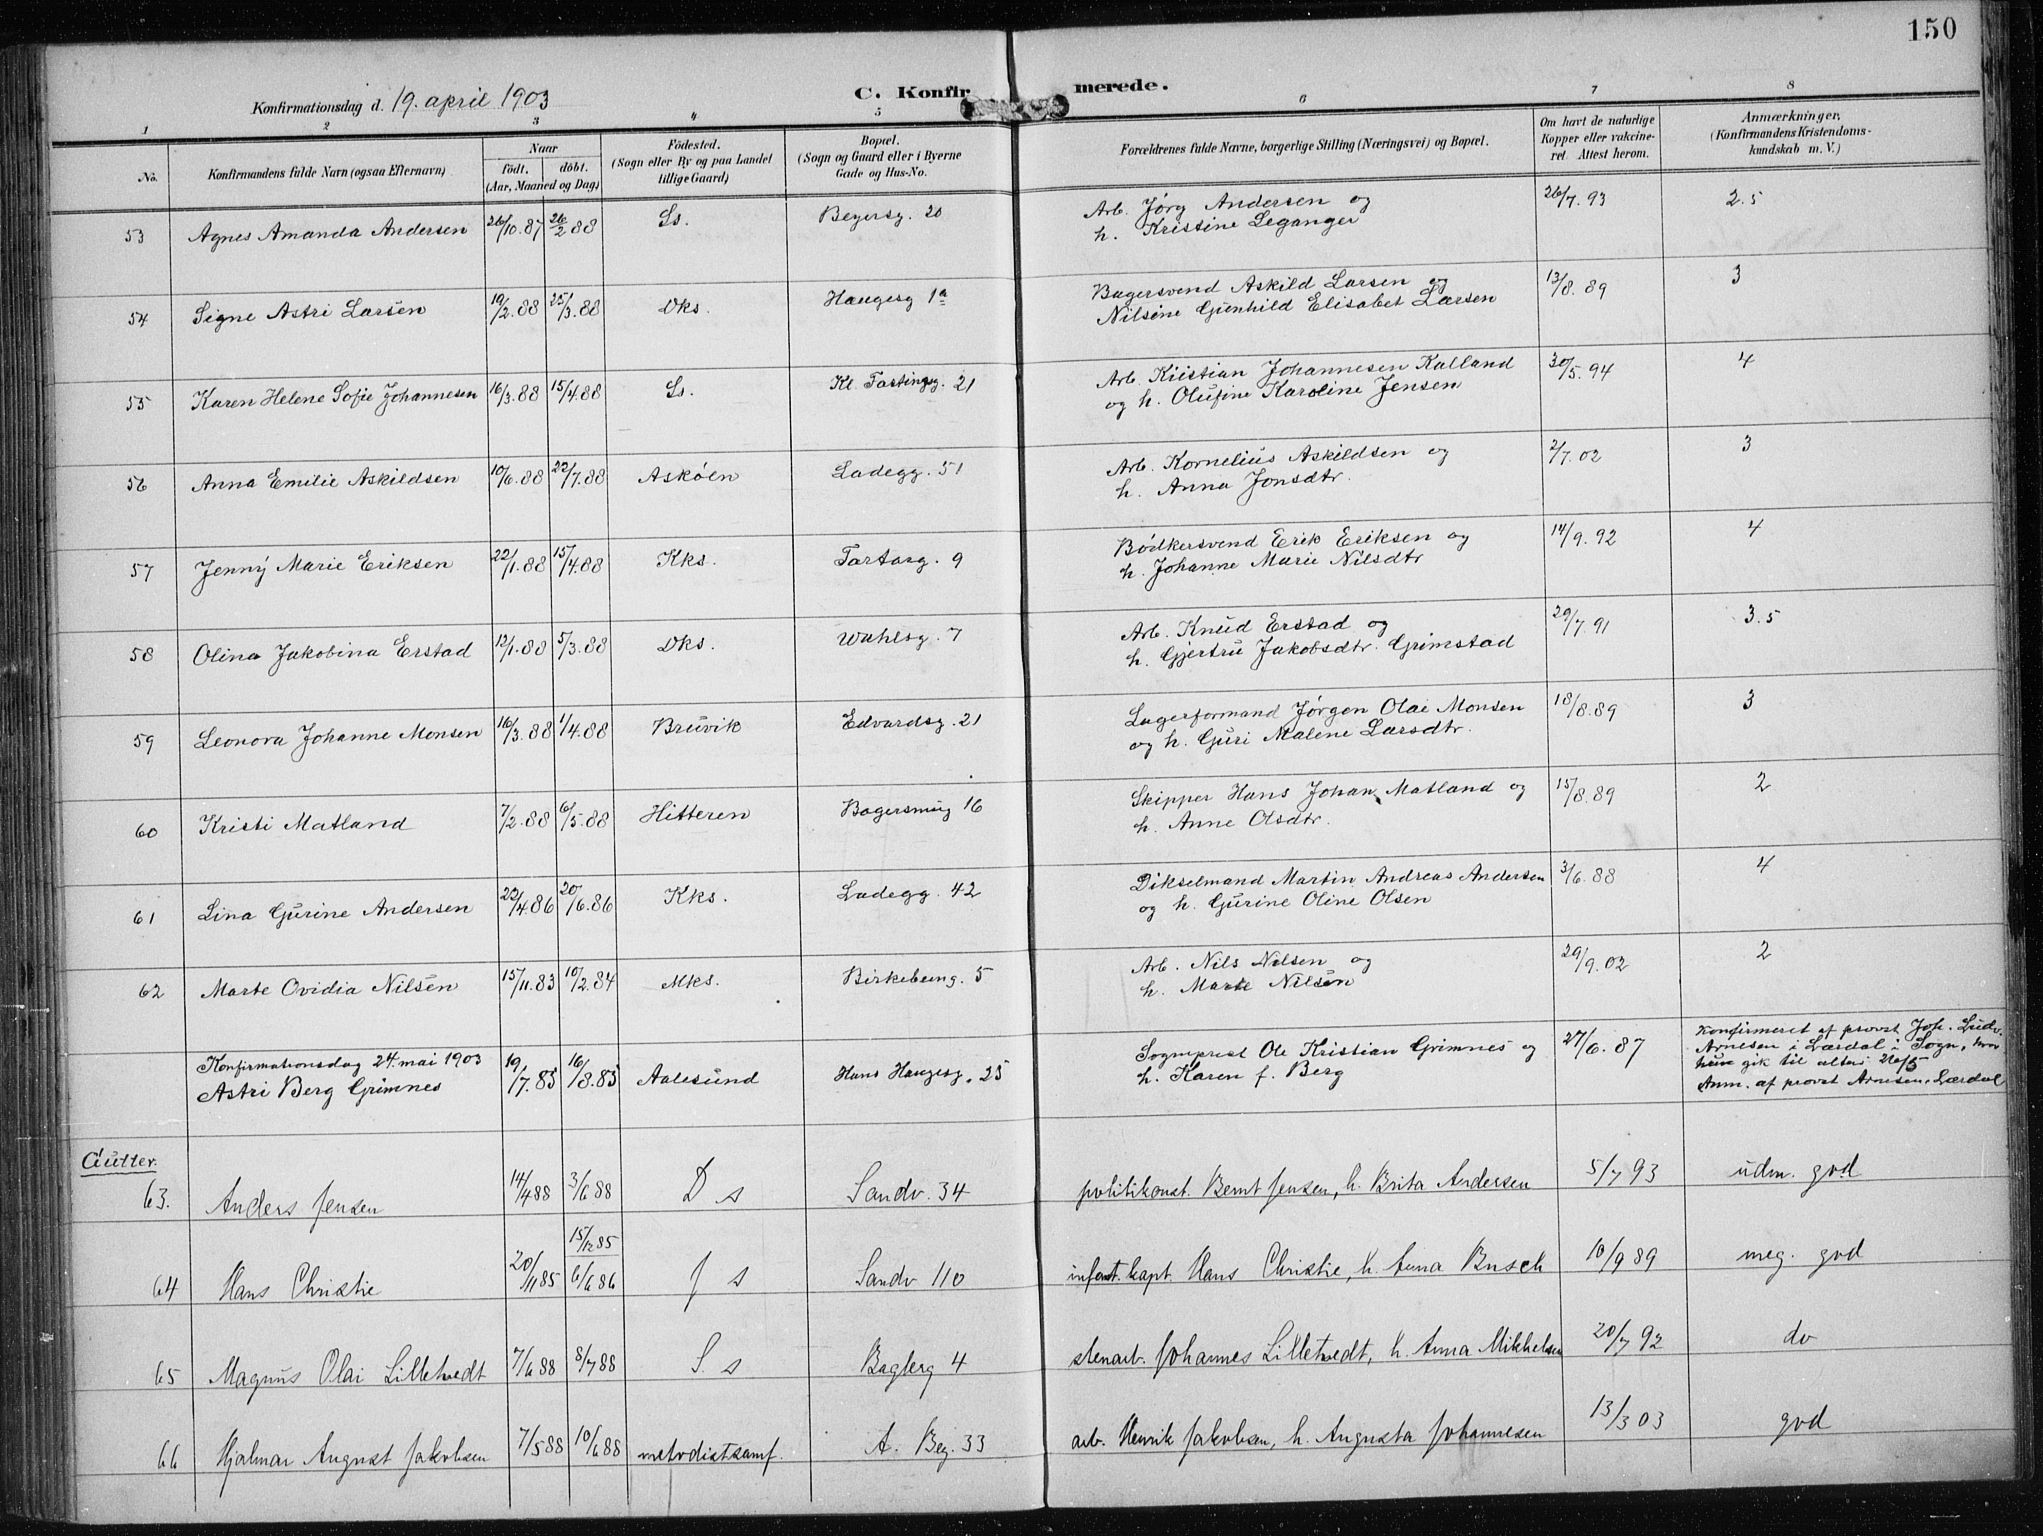 150
Konfirmationsdag d. 19. april 1903
C. Konfirmerede.
1 2 3 4 5 6 7 8
No.
Konfirmandens fulde Navn (ogsaa Efternavn)
Naar
födt. döbt.
(Aar, Maaned og Dag)
Födested.
(Sogn eller By og paa Landet
tillige Gaard)
Bopæl.
(Sogn og Gaard eller i Byerne
Gade og Hus-No.
Forældrenes fulde Navne, borgerlige Stilling (Næringsvei) og Bopæl.
Om havt de naturlige
Kopper eller vakcine-
ret. Attest herom.
Anmærkninger,
(Konfirmandens Kristendoms-
kundskab m. V.)
53 Agnes Amanda Andersen 26/10.87 26/2 88 Ss. Beyersg. 20 Arb. Jørg Andersen og 26/7.93 2.5
h. Kristine Leganger
54 Signe Astri Larsen 19/2.88 25/3.88 Dks. Haugesg 1a Bagersvend Askild Larsen og 13/8.89 3
Nilsine Gunhild Elisabet Larsen
55 Karen Helene Sofie Johannesen 16/3.88 15/4.88 Ss. Kl. 21 Arb. Kristian Johannesen Kalland 30/5.94 4
og h. Olufine Karoline Jensen
56 Anna Emilie Askildsen 10/6.88 22/7.88 Askøen Ladegg. 51 Arb. Kornelius Askildsen og 2/7.02 3
h. Anna Jonsdtr.
57 Jenny Marie Eriksen 22/1.88 15/4.88 Kks. Tartarg. 9 Bødkersvend Erik Eriksen og 14/9.92 4
h. Johanne Marie Nilsdtr
58 Olina Jakobina Erstad 12/1.88 5/3.88 Dks. Wahlsg. 7 Arb. Knud Erstad og 29/7.91 3.5
h. Gjertru Jakobsdtr. Grimstad
59 Leonora Johanne Monsen 16/3.88 1/4.88 Bruvik Edvardsg. 21 Lagerformand Jørgen Olai Monsen 18/8.89 3
og h. Guri Malene Larsdtr.
60 Kristi Matland 7/2.88 6/5.88 Hitteren Bagersmug 16 Skipper Hans Johan Matland og 15/8.89 2
h. Anne Olsdtr.
61 Lina Gurine Andersen 22/4.86 20/6.86 Kks. Ladegg. 42 Dikselmand Martin Andreas Andersen 3/6.88 4
og h. Gurine Oline Olsen
62 Marte Ovidia Nilsen 15/11.83 10/2.84 Mks. Birkebeing. 5 Arb. Nils Nilsen og 29/9.02 2
h. Marte Nilsen
Konfirmationsdag 24. mai 1903
Astri Berg Grimnes 19/7.85 16/8.85 Aalesund Hans Haugesg. 25 Sogneprest Ole Kristian Grimnes og 27/6.87
h. Karen f. Berg
Konfirmeret af provst Joh. Ludv.
Arnesen i Lærdal i Sogn, hvor
hun gik til alters 26/5
Anm. af provst Arnesen, Lærdal
Gutter.
63. Anders Jensen 14/4 88 3/6 88 D s Sandv. 34 politikonst. Bernt Jensen, h. Brita Andersen 5/7 93 udm. god
64 Hans Christie 20/11 85 15/12 85 6/6 86 J s Sandv 110 infant. kapt. Hans Christie, h. Anna Busch 10/9 89 meg. god
65 Magnus Olai Lilletvedt 7/6 88 8/7 88 S s Bagberg 4 stenarb. Johannes Lilletvedt, h. Anna Mikkelsen 20/7 92 do
66 Hjalmar August Jakobsen 7/5 88 10/6 88 metodistsamf. A. Beg. 33 arb. Henrik Jakobsen, h. Augusta Johannesen 13/3 03 god